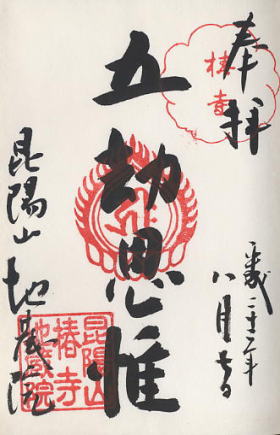 奉拝
椿寺
平成二十二年
八月
五劫思惟
昆陽山 地蔵院
昆陽山
椿寺
地蔵院